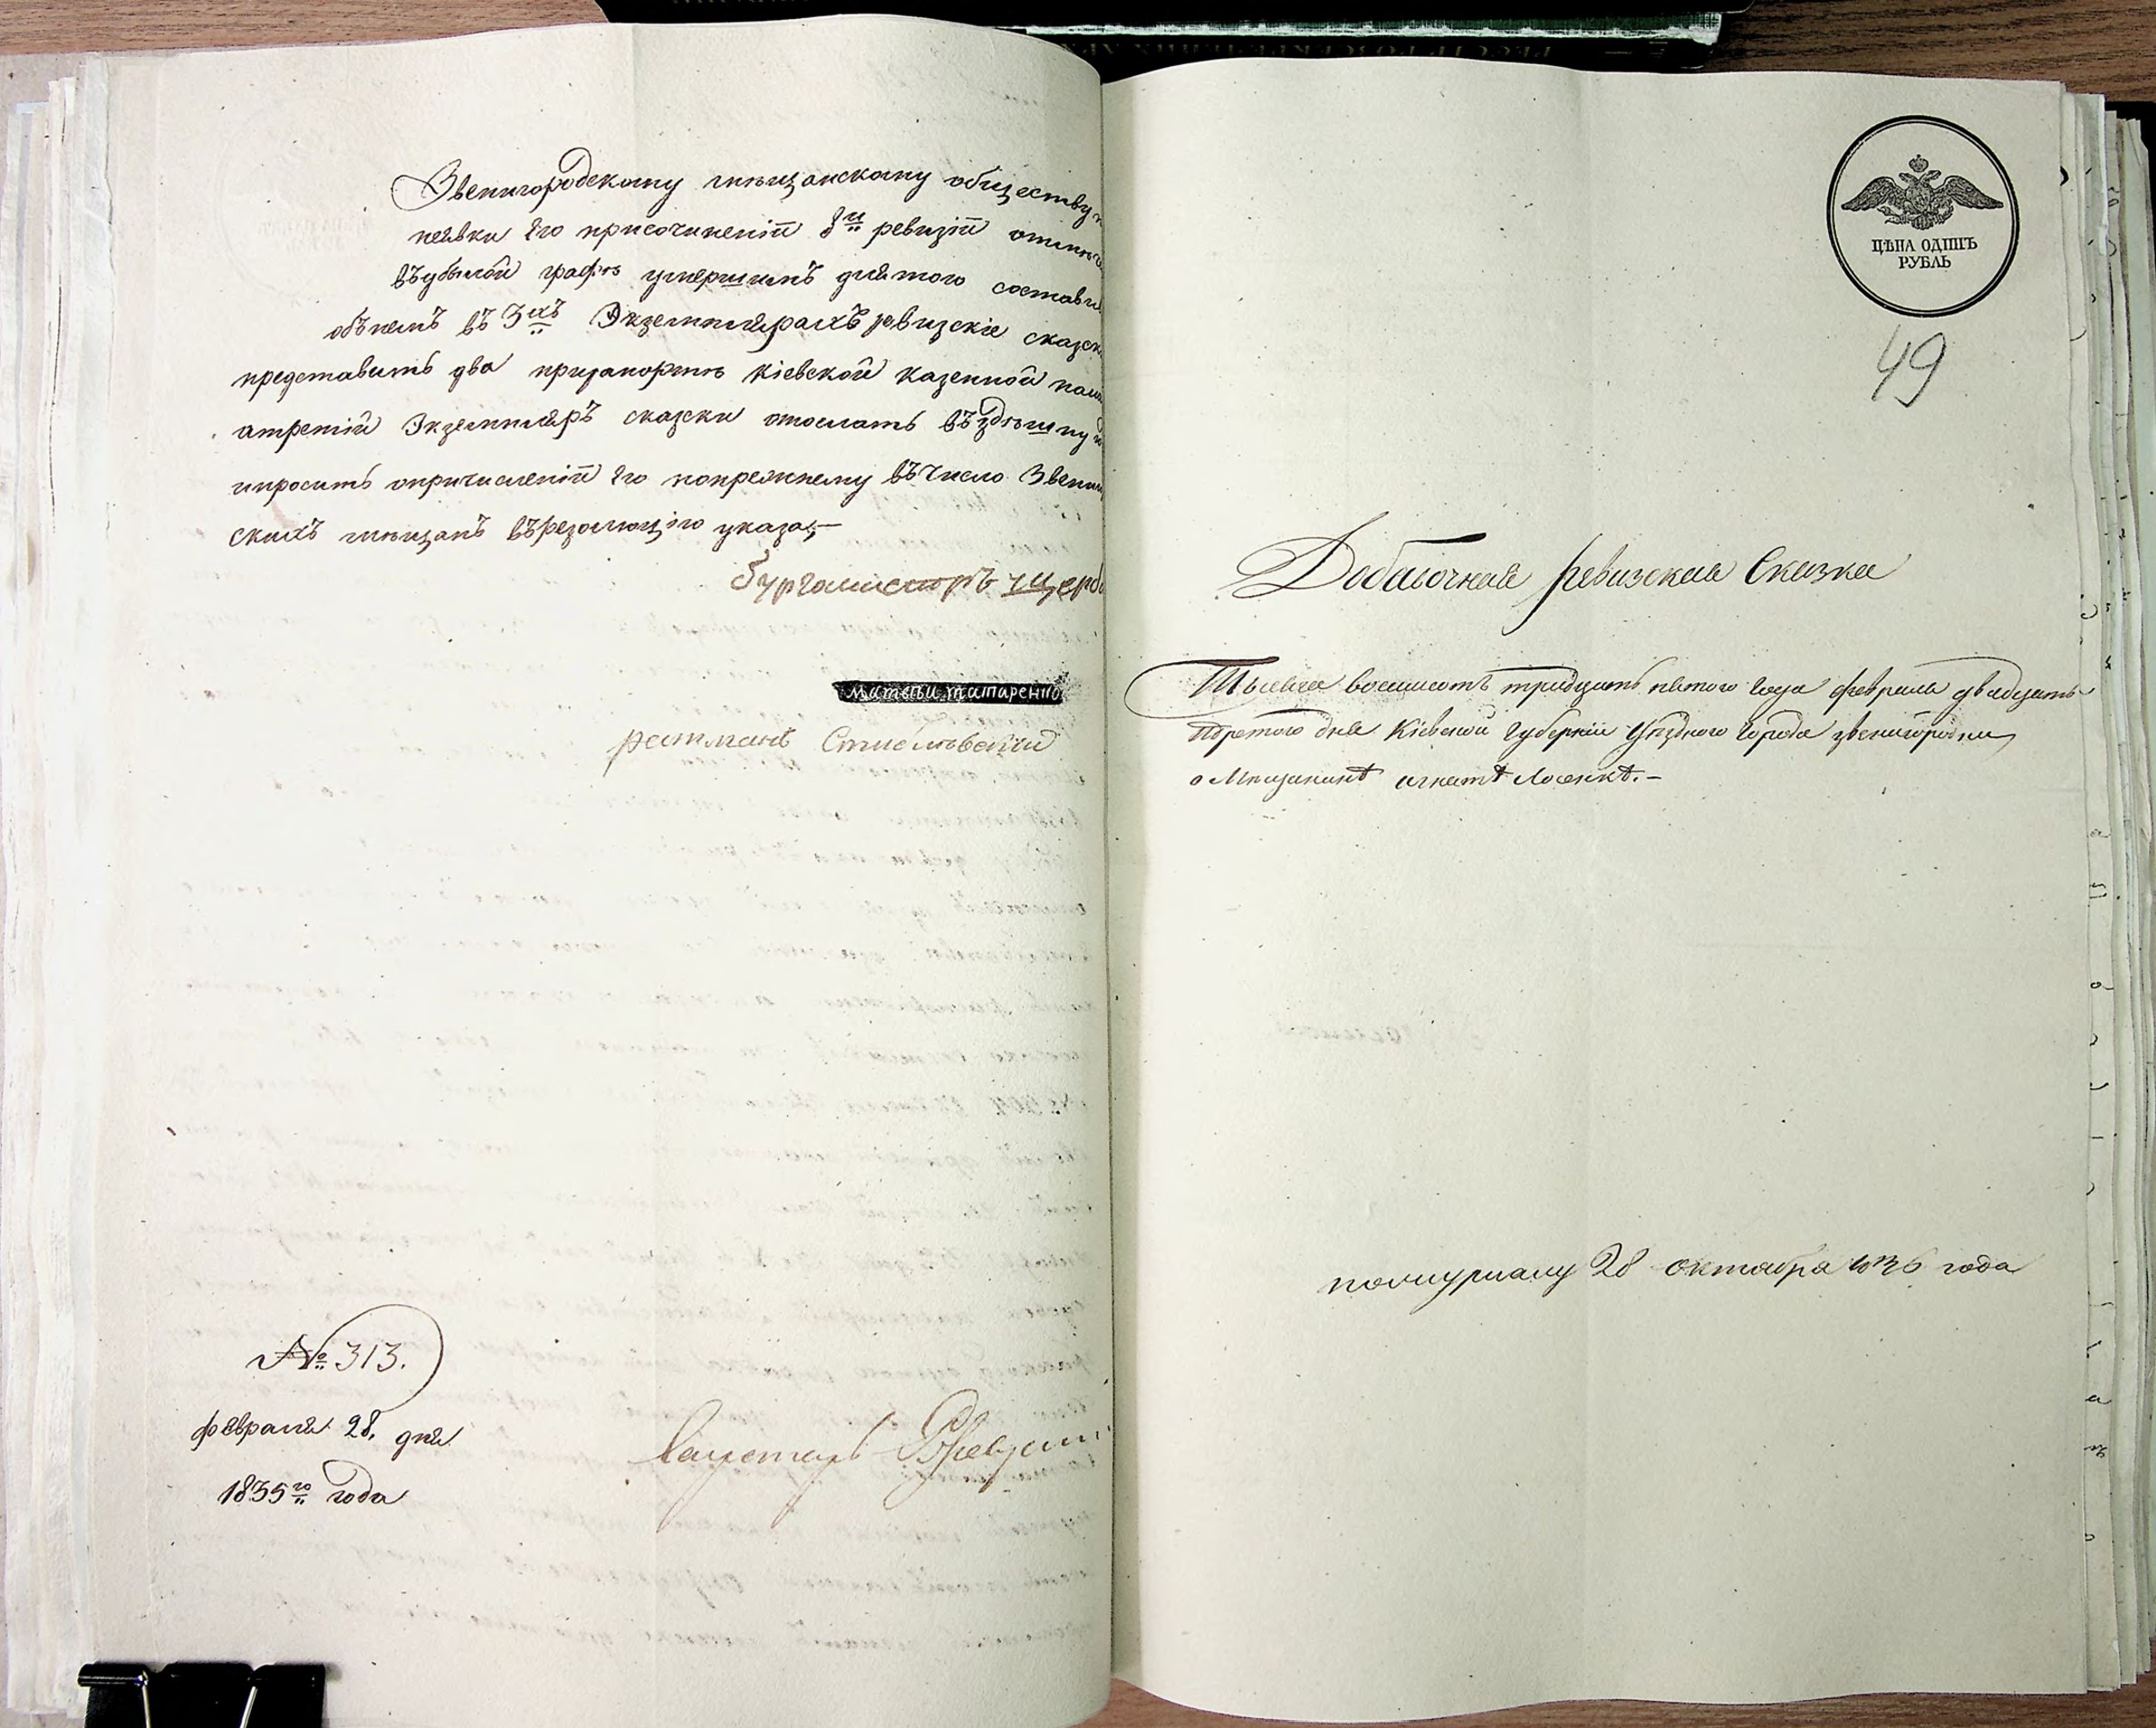 Звенигородскому мѣщанскому обществу
неявки Его присочиненіи 8й ревизіи
въ убылой графѣ умершимъ для того состави
объ немъ въ 3хъ Экземплярахъ ревизскіе сказк
представить два при рапортѣ Кіевской Казенной пала
а третій Экземпляръ сказки отослать въ здѣшную
и просить опричисленіи Его попрежнему въ число Звени
скихъ мѣщанъ въ резолюцію указа,—
Бургомистръ Щерб
Матвѣй Татаренко
ратманъ Стеблѣвскій
№ 313.
февраля 28. дня
1835го года
Секретарь
ЦѢНА ОДИНЪ
РУБЛЬ
49
Добавочная ревизская Сказка
Тысяча восемьсотъ тридцать пятого года февраля двадцать
третого дня Кіевской Губерніи Уѣздного Города звенигородки
о Мѣщанинѣ Игнатѣ Лосенкѣ.—
пожурналу 28 октября 1836 года